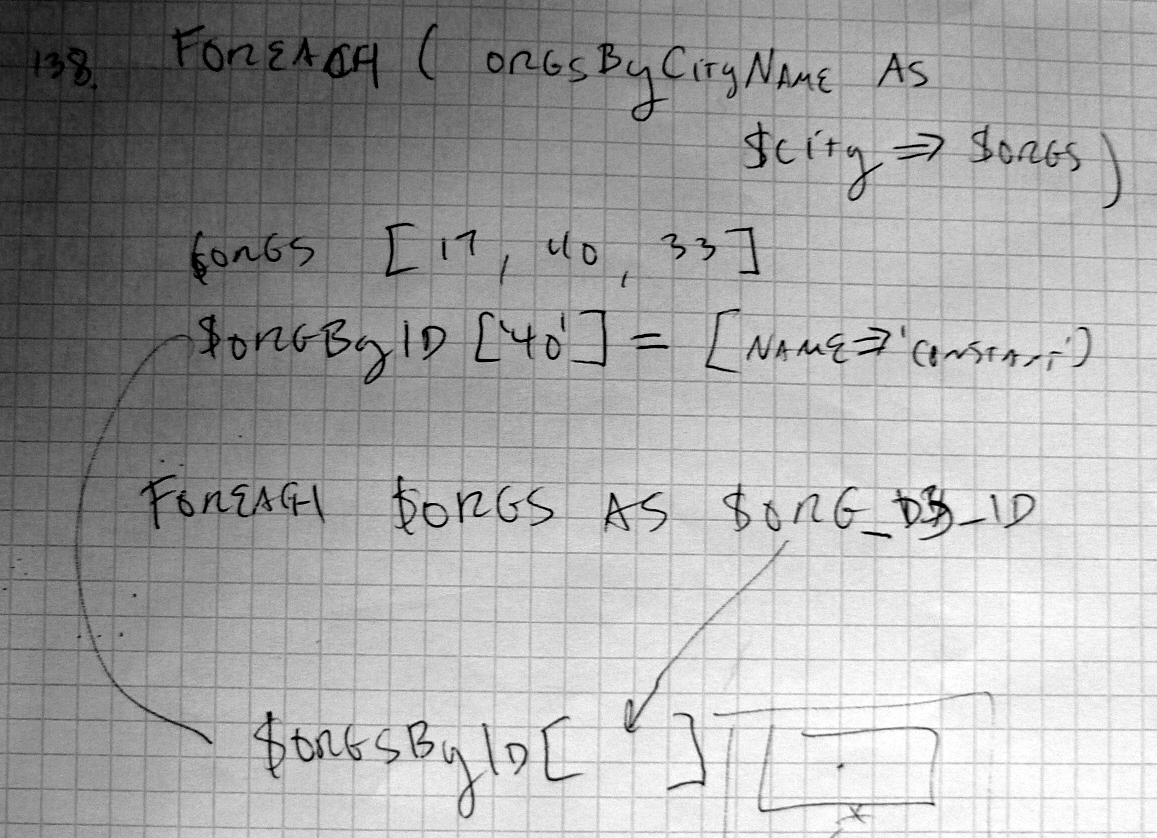 138. FOREACH ( ORGSByCityNAME AS
$city => $ORGS )
$ORGS [ 17, 40, 33 ]
$ORGByID ['40'] = [ NAME => 'CONSTANT' ]
FOREACH $ORGS AS $ORG_DB_ID
$ORGSByID [ ]